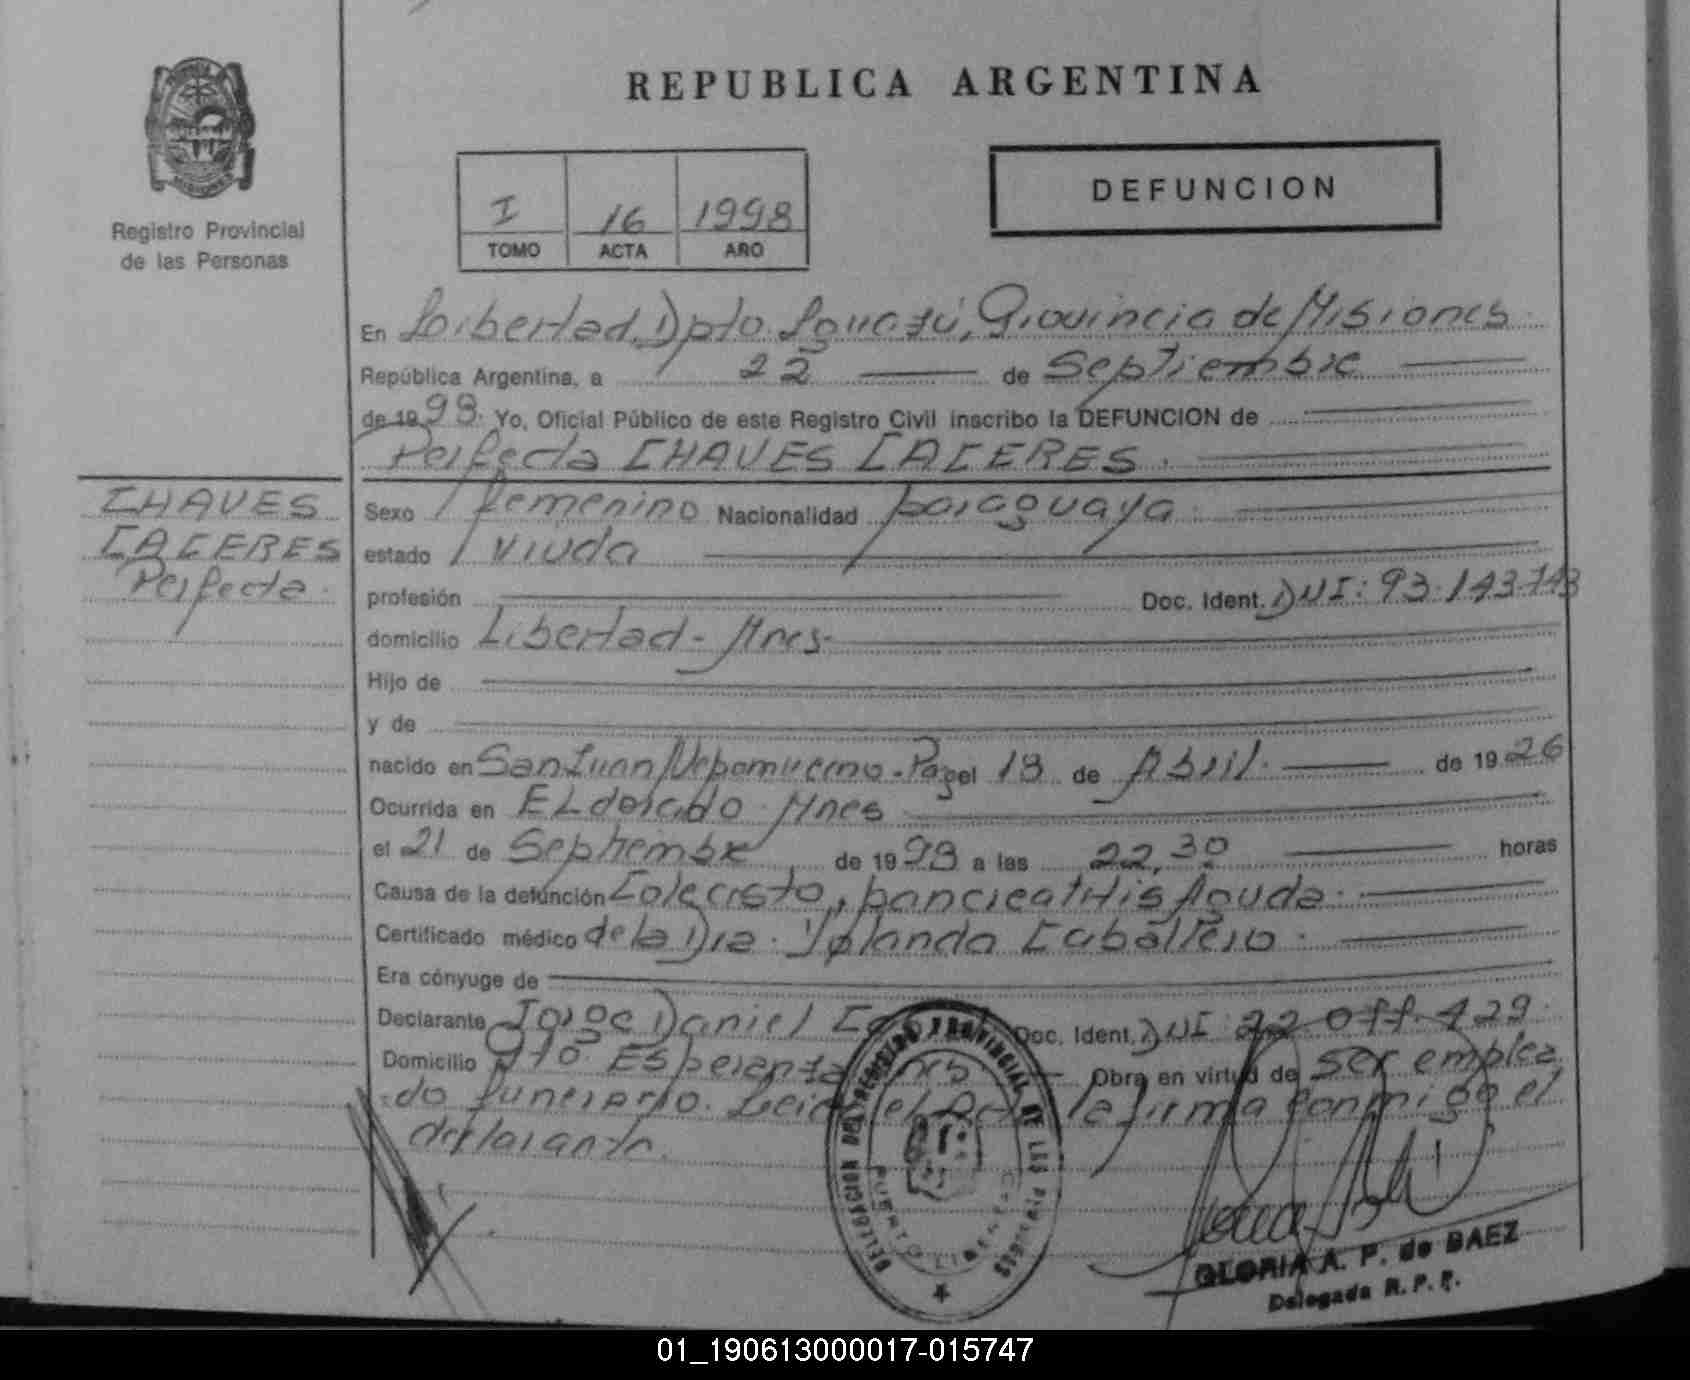 REPUBLICA ARGENTINA
MISIONES
Registro Provincial
de las Personas
I 16 1998
TOMO ACTA AÑO
DEFUNCION
En Libertad, Dpto. Iguazú, Provincia de Misiones.
República Argentina, a 22 de Septiembre
de 1998. Yo, Oficial Público de este Registro Civil inscribo la DEFUNCION de
Perfecta CHAVES CACERES.
CHAVES
CACERES
Perfecta.
Sexo femenino Nacionalidad paraguaya
estado viuda
profesión Doc. Ident. DNI: 93.143.743
domicilio Libertad - Mnes.
Hijo de
y de
nacido en San Juan Nepomuceno - Pag el 18 de Abril de 1926
Ocurrida en ELdorado Mnes
el 21 de Septiembre de 1998 a las 22,30 horas
Causa de la defunción Colecisto, pancreatitis Aguda
Certificado médico de la Dra. Yolanda Caballero.
Era cónyuge de
Declarante Jorge Daniel Doc. Ident. DNI 22.077.429.
Domicilio Pto. Esperanza Mnes Obra en virtud de ser emplea
do funerario. el la firma conmigo el
declarante.
DELEGACION DEL REGISTRO PROVINCIAL DE LAS PERSONAS
PUERTO LIBERTAD
GLORIA A. P. de BAEZ
Delegada R. P. P.
01_190613000017-015747